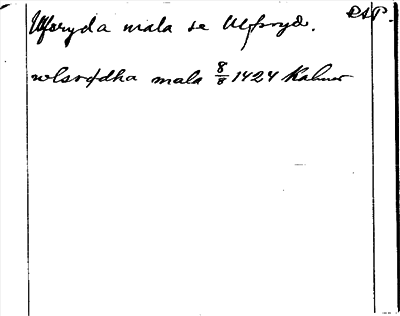 Ulfsryda mala se Ulfsryd. RAP.
wlsrydha mala 8/8 1424 Kalmar